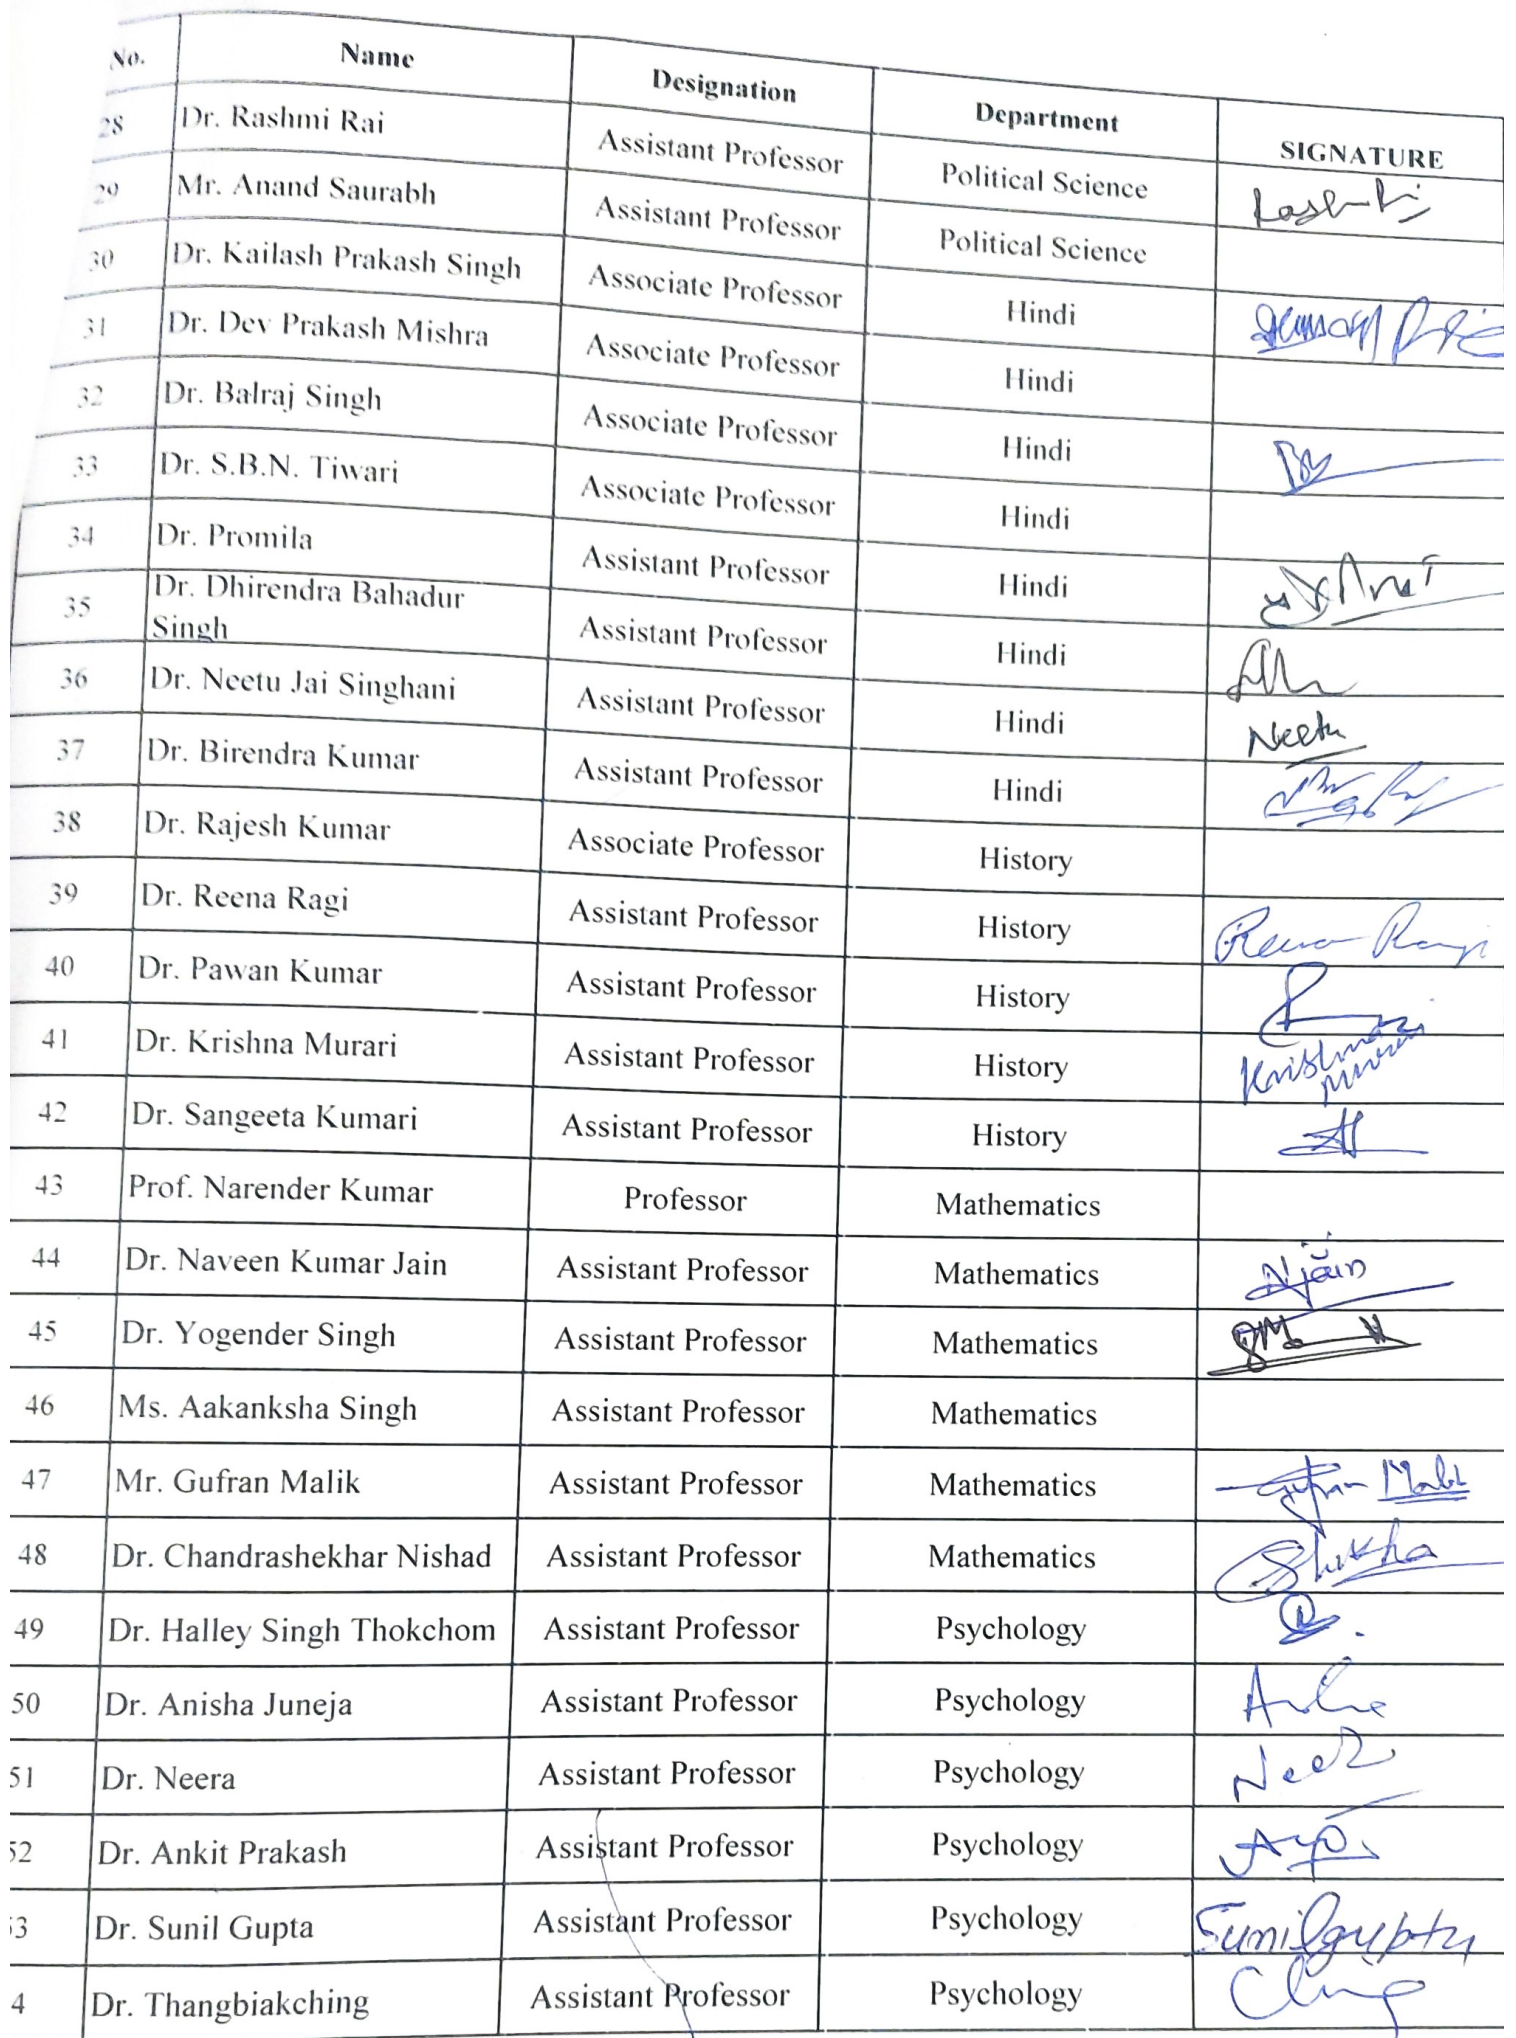 No. Name Designation Department SIGNATURE
28 Dr. Rashmi Rai Assistant Professor Political Science
29 Mr. Anand Saurabh Assistant Professor Political Science
30 Dr. Kailash Prakash Singh Associate Professor Hindi
31 Dr. Dev Prakash Mishra Associate Professor Hindi
32 Dr. Balraj Singh Associate Professor Hindi
33 Dr. S.B.N. Tiwari Associate Professor Hindi
34 Dr. Promila Assistant Professor Hindi
35 Dr. Dhirendra Bahadur
Singh Assistant Professor Hindi
36 Dr. Neetu Jai Singhani Assistant Professor Hindi Neetu
37 Dr. Birendra Kumar Assistant Professor Hindi
38 Dr. Rajesh Kumar Associate Professor History
39 Dr. Reena Ragi Assistant Professor History
40 Dr. Pawan Kumar Assistant Professor History
41 Dr. Krishna Murari Assistant Professor History Krishna
42 Dr. Sangeeta Kumari Assistant Professor History
43 Prof. Narender Kumar Professor Mathematics
44 Dr. Naveen Kumar Jain Assistant Professor Mathematics Njain
45 Dr. Yogender Singh Assistant Professor Mathematics
46 Ms. Aakanksha Singh Assistant Professor Mathematics
47 Mr. Gufran Malik Assistant Professor Mathematics
48 Dr. Chandrashekhar Nishad Assistant Professor Mathematics
49 Dr. Halley Singh Thokchom Assistant Professor Psychology
50 Dr. Anisha Juneja Assistant Professor Psychology
51 Dr. Neera Assistant Professor Psychology
52 Dr. Ankit Prakash Assistant Professor Psychology
3 Dr. Sunil Gupta Assistant Professor Psychology Sunilgupta
4 Dr. Thangbiakching Assistant Professor Psychology Ching